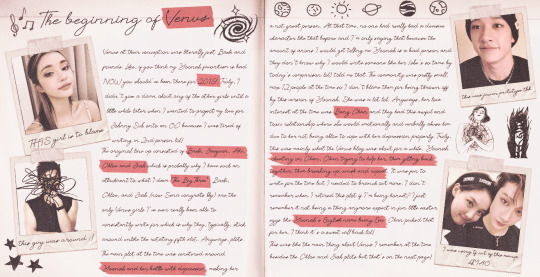 The beginning of Venus
Venus at their conception was literally just Baek and
friends. Like, if you think my Hannah favoritism is bad
NOW, you should've been there for 2018. Truly, I
didn't give a damn about any of the other girls until a
little while later when I wanted to project my love for
Johnny Suh onto an OC because I was tired of
writing in 2nd person lol!
THIS girl is to blame
The original line up consisted of Baek,
Chloe and Baek which is probably why I have such an
attachment to what I deem "The Big Three". Baek,
Chloe, and Baek (now
only Venus girls I've ever really been able to
constantly write for which is why they, typically, stick
around unlike the rotating fifth slot. Anyways, plot.
The main plot at the time was centered around
Hannah and her battle with depression, making her
this guy was around :/
a not great person. At that time, no one had really had a divisive
character like that before and I'm only saying that because the
amount of anons I would get telling me Hannah is a bad person and
they don't know why I would write someone like her (she's so tame by
today's comparison lol) told me that. The community was pretty small,
max 12 people at the time so I don't blame them for being thrown off
by this version of Hannah. She was a lot lol. Anyways, her love
interest at the time was Bang Chan and they had this rushed and
toxic relationship where she would emotionally and verbally abuse him
due to her not being able to cope with her depression properly. Truly,
this was mainly what the Venus blog was about for a while. Hannah
cheating on Chan, Chan trying to help her, them getting back
together, then breaking up, rinse and repeat. It was fun to
write for the time but I needed to branch out more. I don't
remember when I retired this plot (I'm being honest)! I just
remember it not being a thing anymore except in for little easter
eggs like Hannah's English name being Eve. Chan picked that
for her, I think it's a sweet call back lol!
This was like the main thing about Venus I remember at the time
besides the Chloe and Baek plots but that's on the next page!
this was jaeum prototype tbh
I was using
LMAO